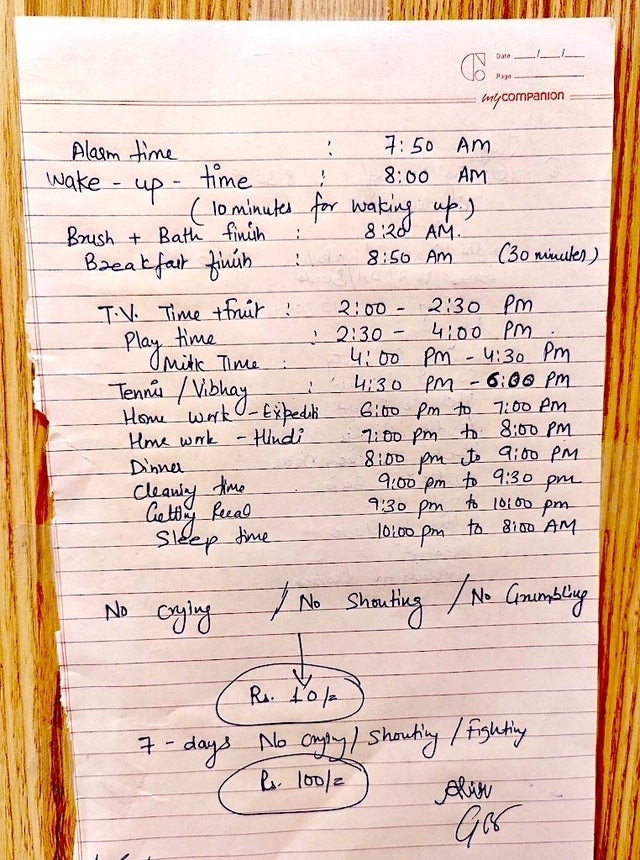 Date __/__/__
Page ____
mycompanion
Alarm time : 7:50 AM
Wake - up - time : 8:00 AM
(10 minutes for waking up.)
Brush + Bath finish : 8:20 AM.
Breakfast finish : 8:50 AM (30 minutes)
T.V. Time + fruit : 2:00 - 2:30 PM
Play time : 2:30 - 4:00 PM.
Milk Time : 4:00 PM - 4:30 PM
Tennis / Vibhay : 4:30 PM - 6:00 PM
Home work - 6:00 pm to 7:00 PM
Home work - Hindi 7:00 pm to 8:00 PM
Dinner 8:00 pm to 9:00 PM
Cleaning time 9:00 pm to 9:30 pm
Getting 9:30 pm to 10:00 pm
Sleep time 10:00 pm to 8:00 AM
No crying / No Shouting / No Grumbling
Rs. 10/=
7 - days No crying / Shouting / Fighting
Rs. 100/=